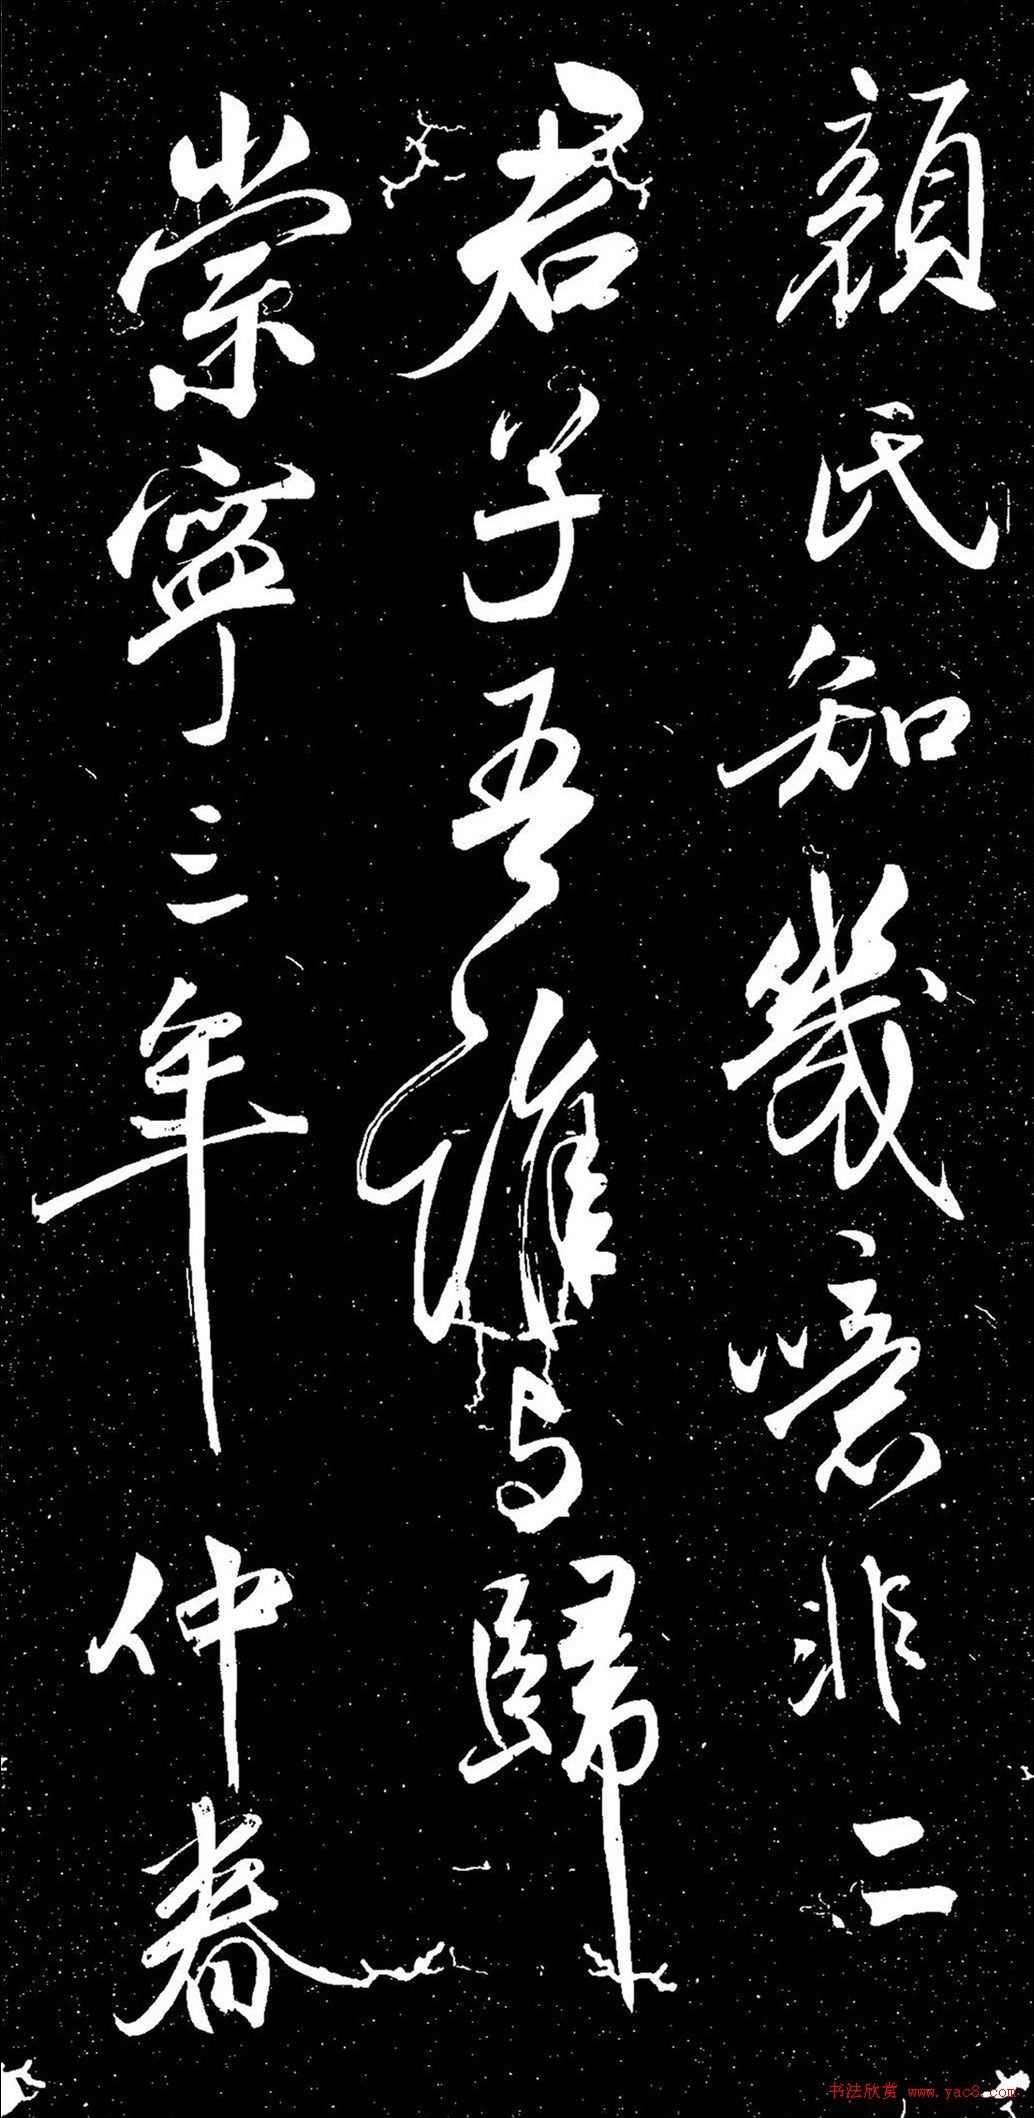 顔氏知幾噫非二
君子吾誰与歸
崇寧三年仲春
书法欣赏 www.yac8.com